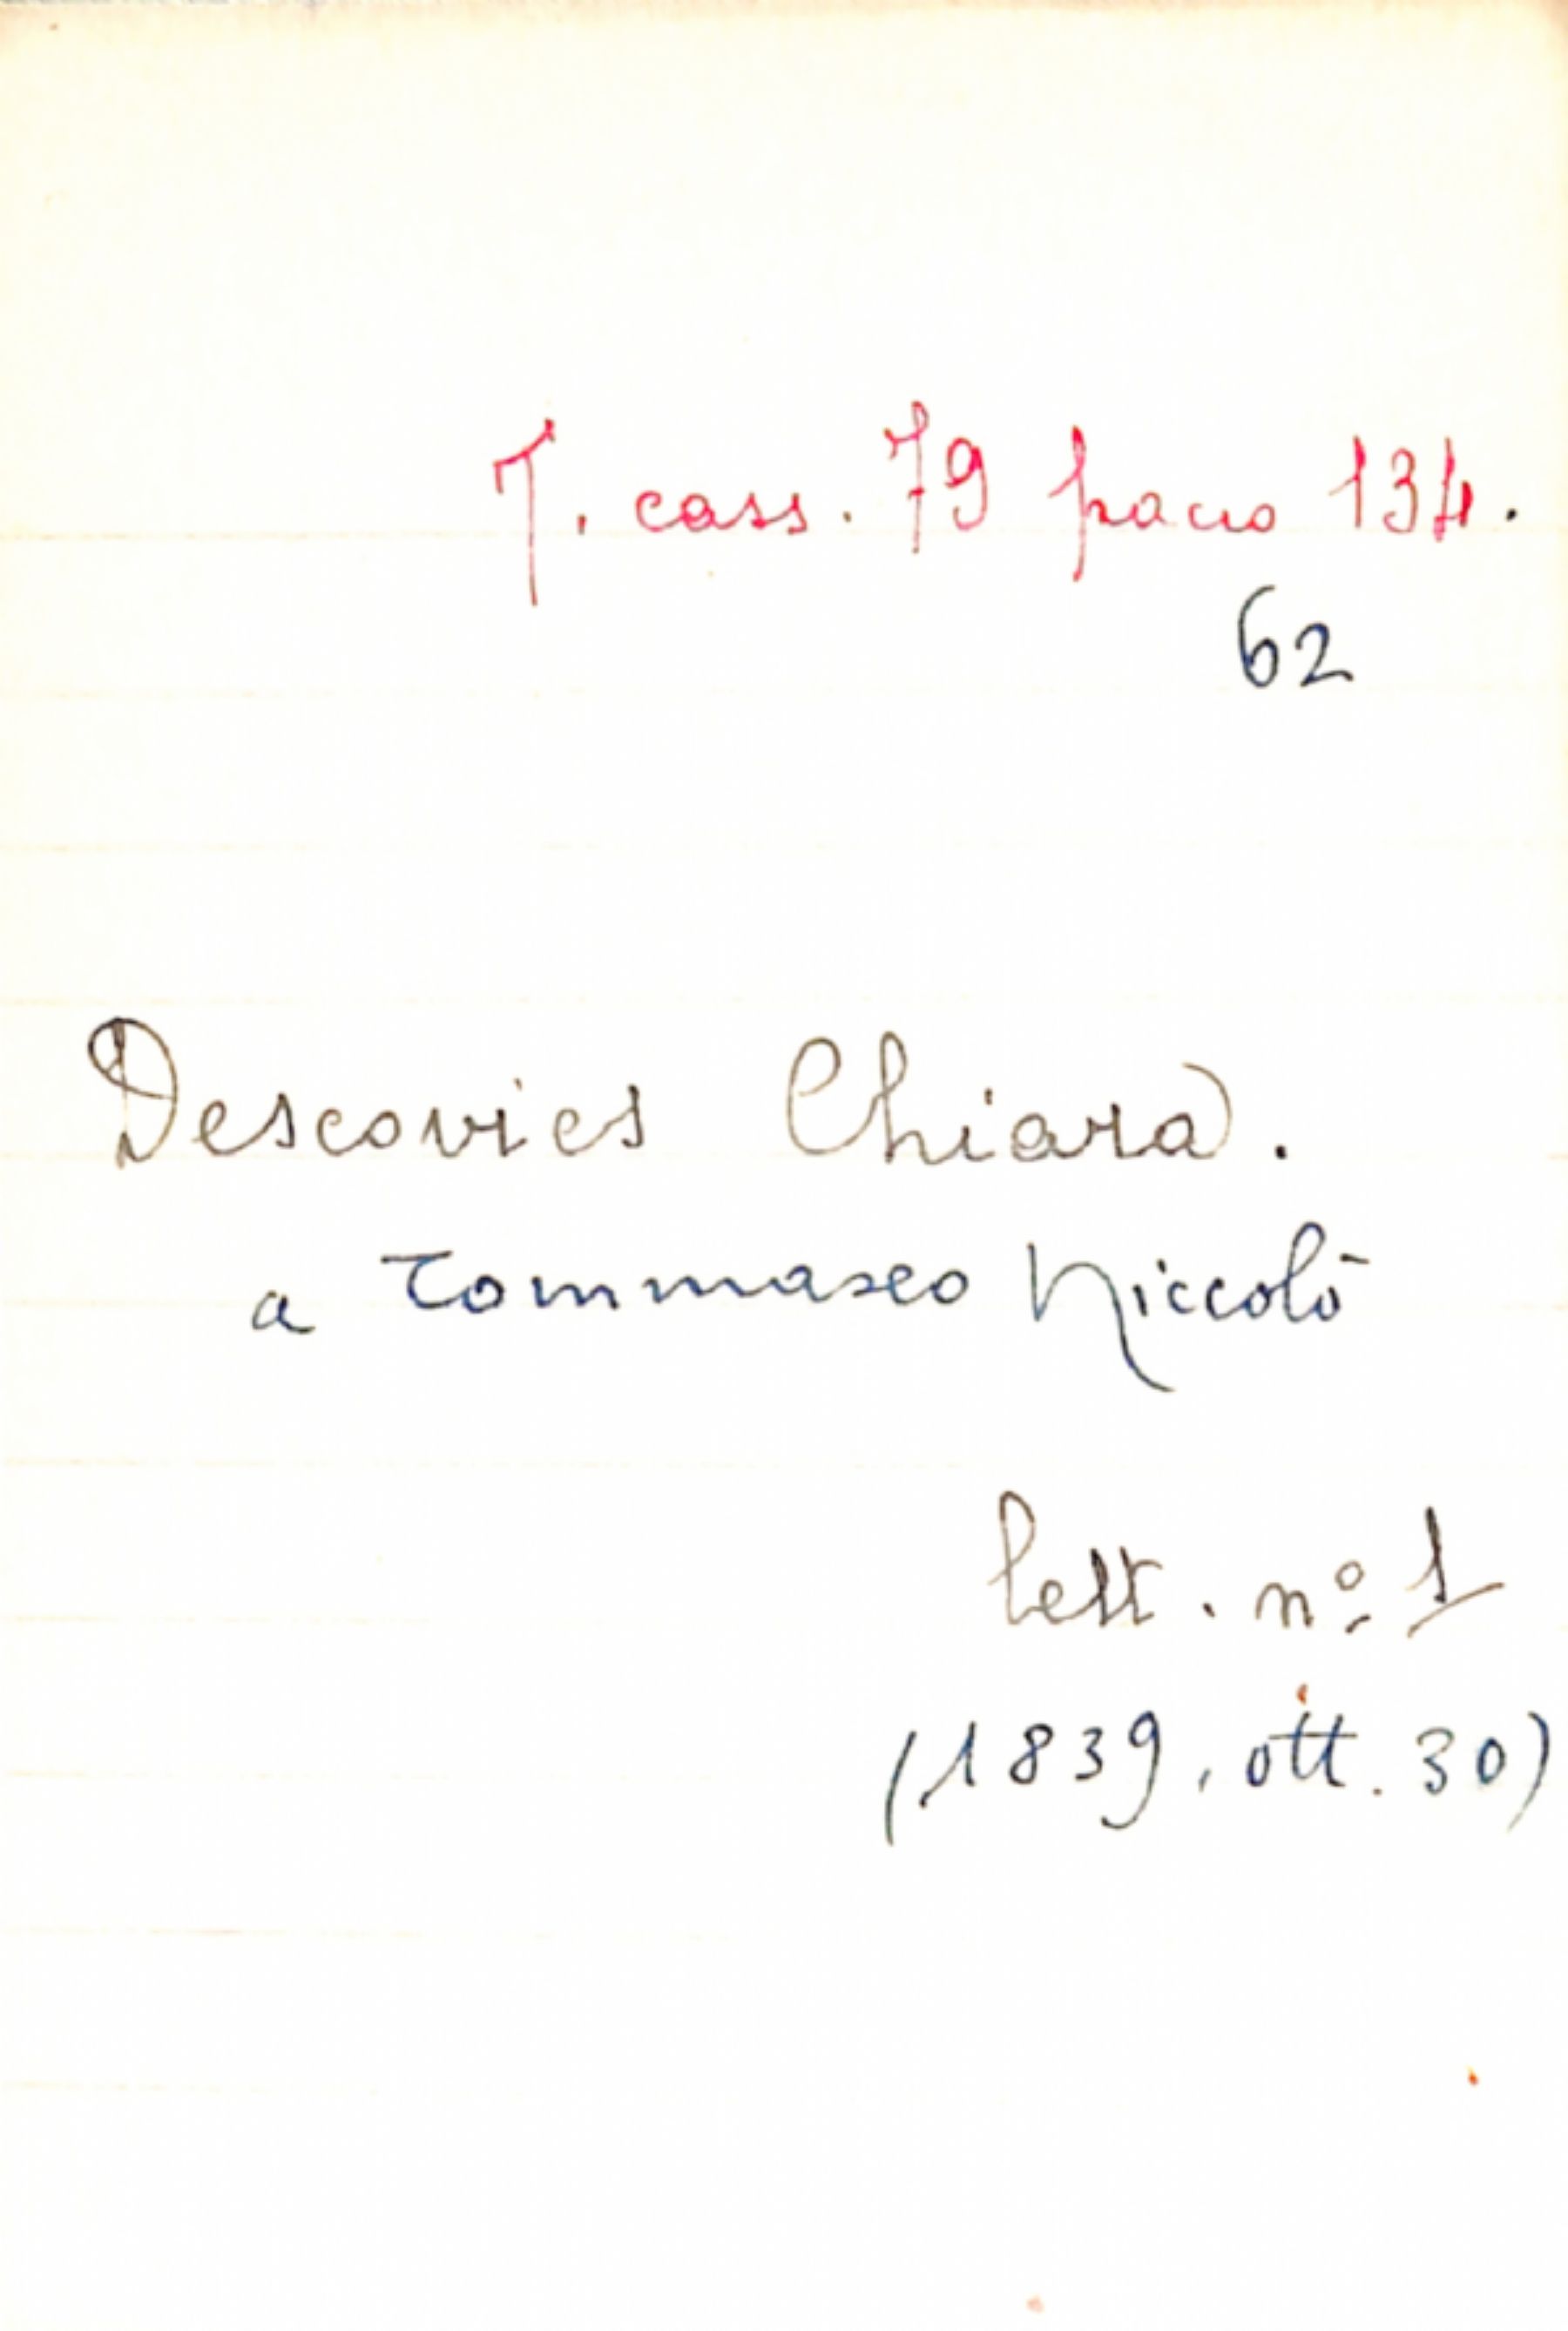 T. cass. 79 pacco 134.
62
Descovies Chiara.
a Tommaseo Niccolò
lett. nº 1
(1839, ott. 30)